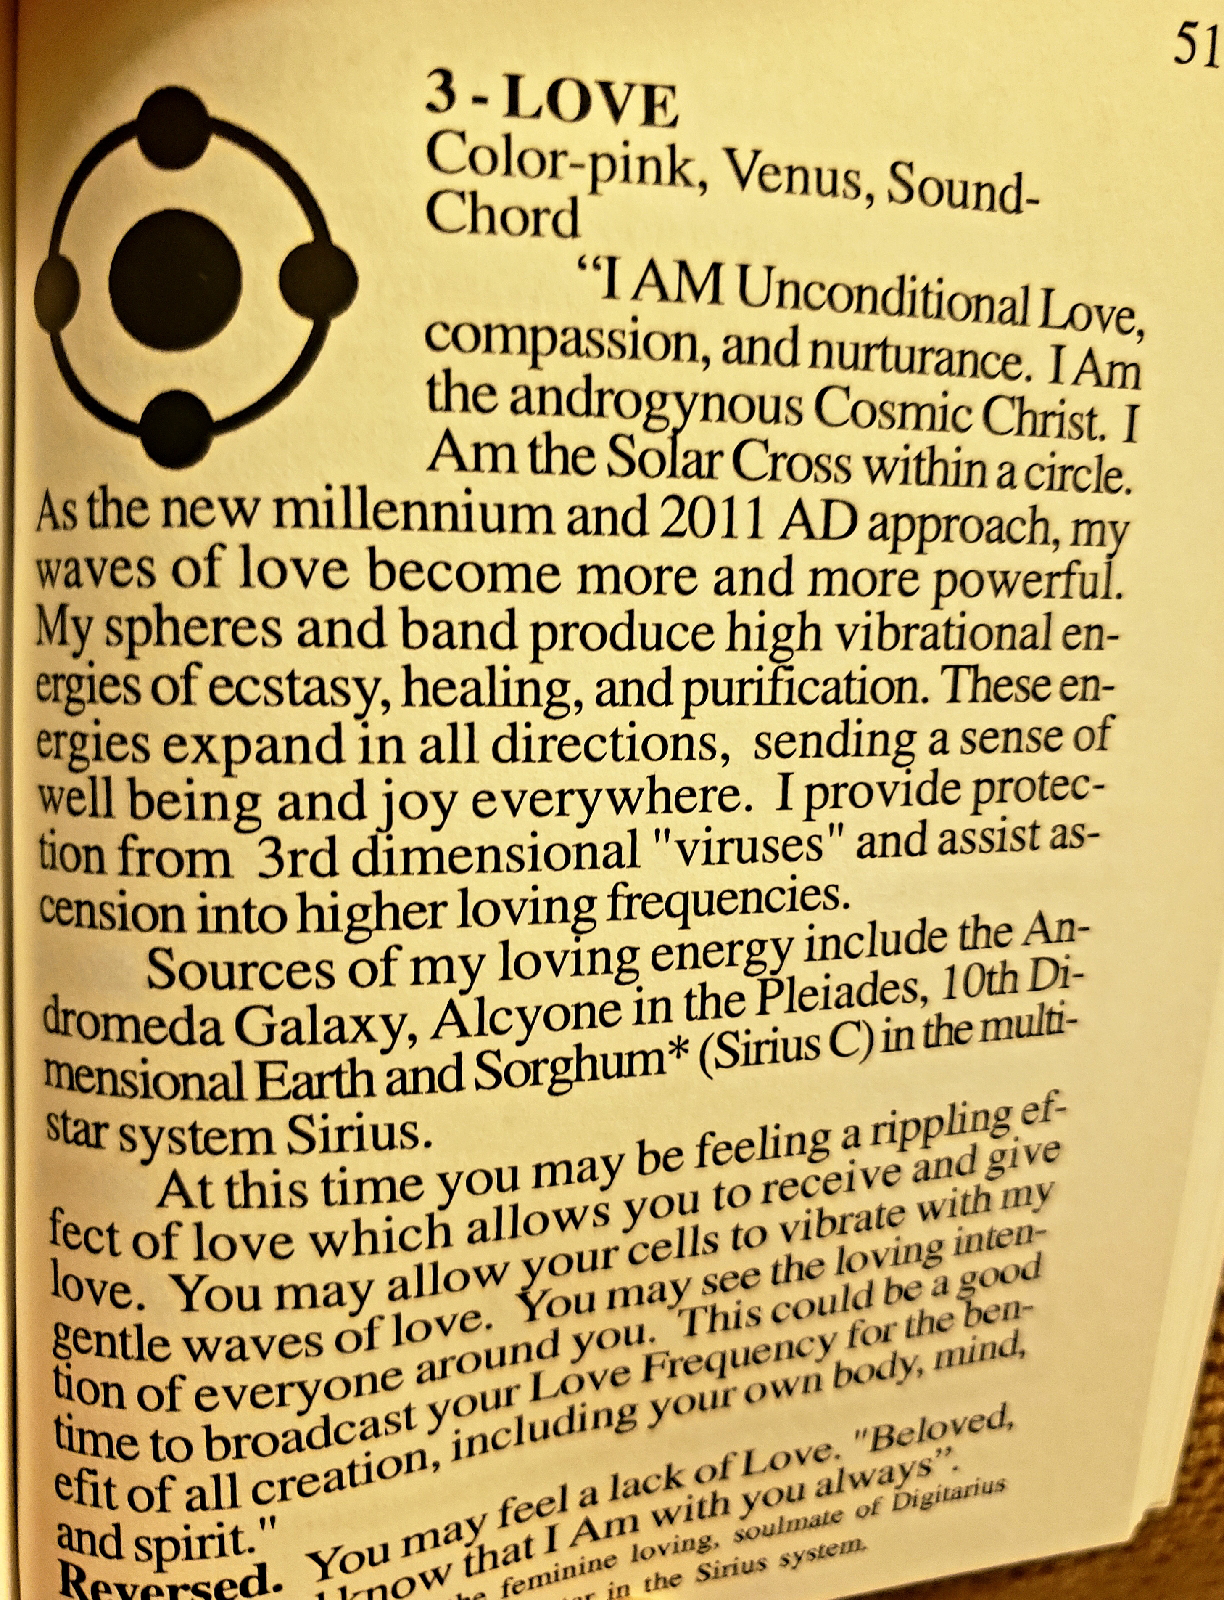 51
3 - LOVE
Color-pink, Venus, Sound-
Chord
“I AM Unconditional Love,
compassion, and nurturance. I Am
the androgynous Cosmic Christ. I
Am the Solar Cross within a circle.
As the new millennium and 2011 AD approach, my
waves of love become more and more powerful.
My spheres and band produce high vibrational en-
ergies of ecstasy, healing, and purification. These en-
ergies expand in all directions, sending a sense of
well being and joy everywhere. I provide protec-
tion from 3rd dimensional "viruses" and assist as-
cension into higher loving frequencies.
Sources of my loving energy include the An-
dromeda Galaxy, Alcyone in the Pleiades, 10th Di-
mensional Earth and Sorghum* (Sirius C) in the multi-
star system Sirius.
At this time you may be feeling a rippling ef-
fect of love which allows you to receive and give
love. You may allow your cells to vibrate with my
gentle waves of love. You may see the loving inten-
tion of everyone around you. This could be a good
time to broadcast your Love Frequency for the ben-
efit of all creation, including your own body, mind,
and spirit."
Reversed. You may feel a lack of Love. "Beloved,
know that I Am with you always”.
feminine loving, soulmate of Digitarius
in the Sirius system.